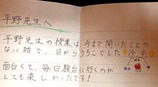 平野先生へ
平野先生の授業は今まで聞いたことの
ない話で、目からうろこでした
面白くて、毎日駿台に行くのが
とても楽しかったです!